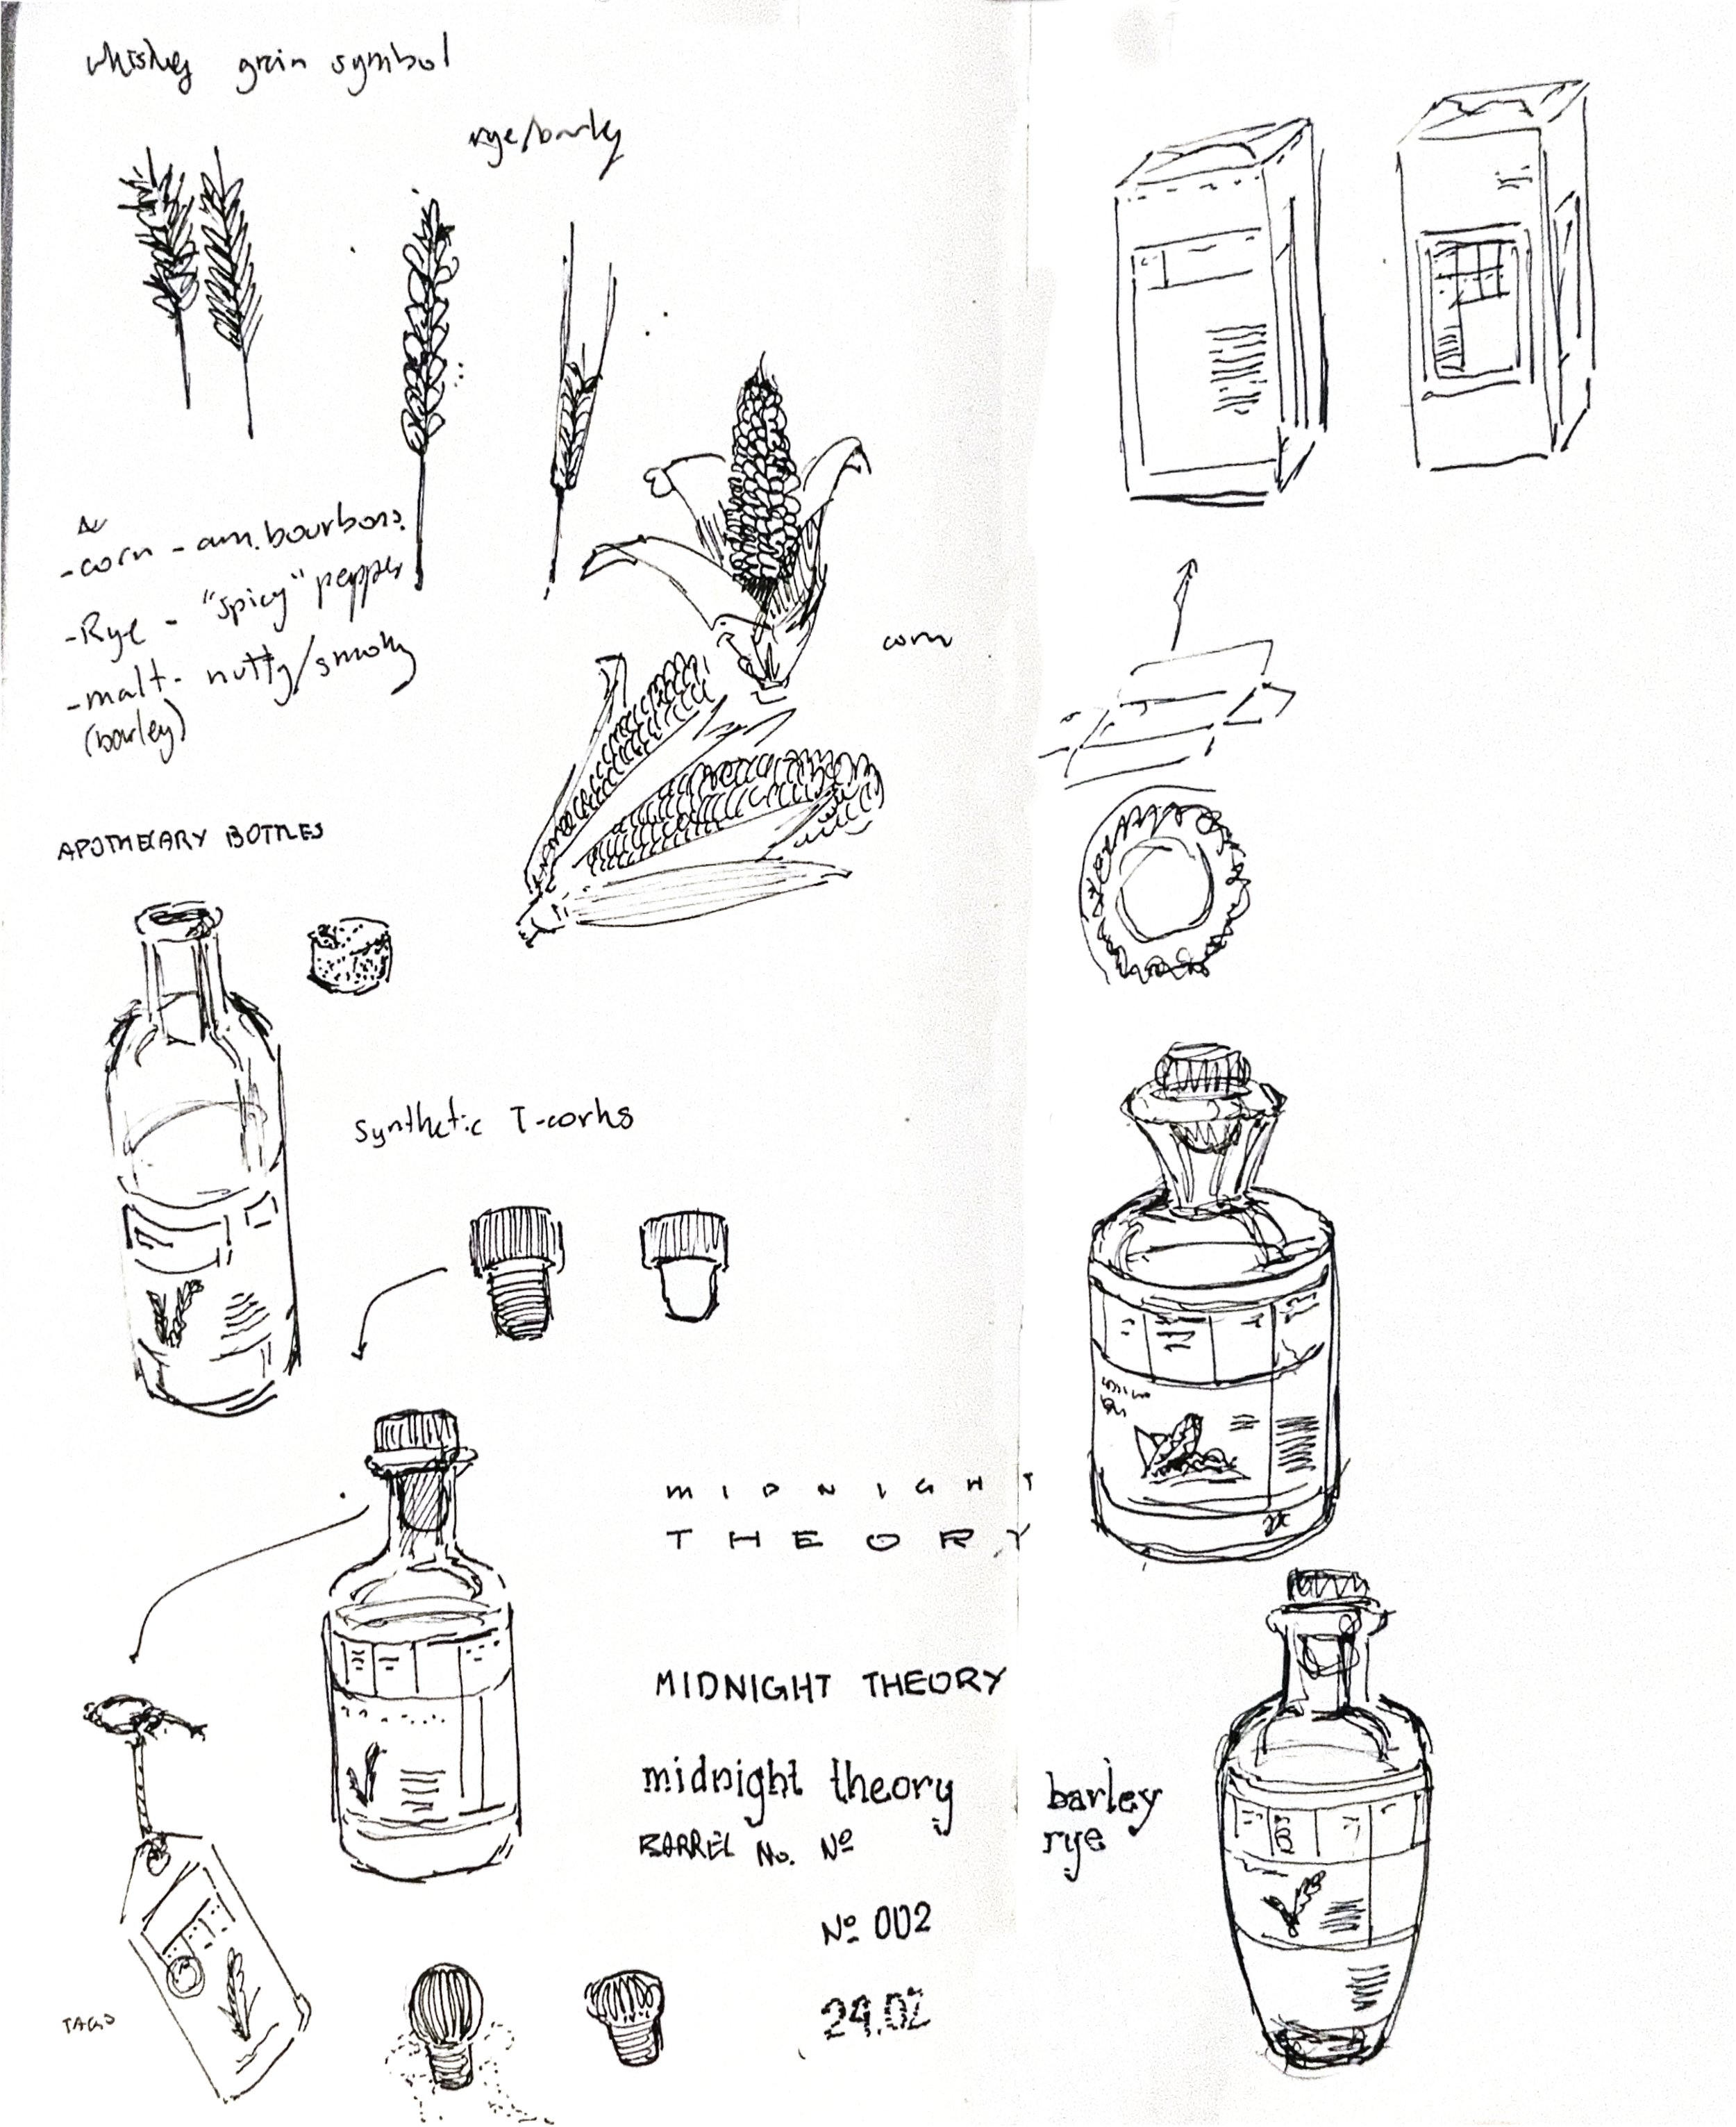 whiskey grain symbol
rye/barley
-corn - am. bourbons.
-Rye - "spicy" pepper
-malt - nutty/smoky
(barley)
corn
APOTHECARY BOTTLES
Synthetic T-corks
MIDNIGHT
THEORY
MIDNIGHT THEORY
midnight theory
BARREL No. Nº
Nº 002
24.02
barley
rye
TAGS